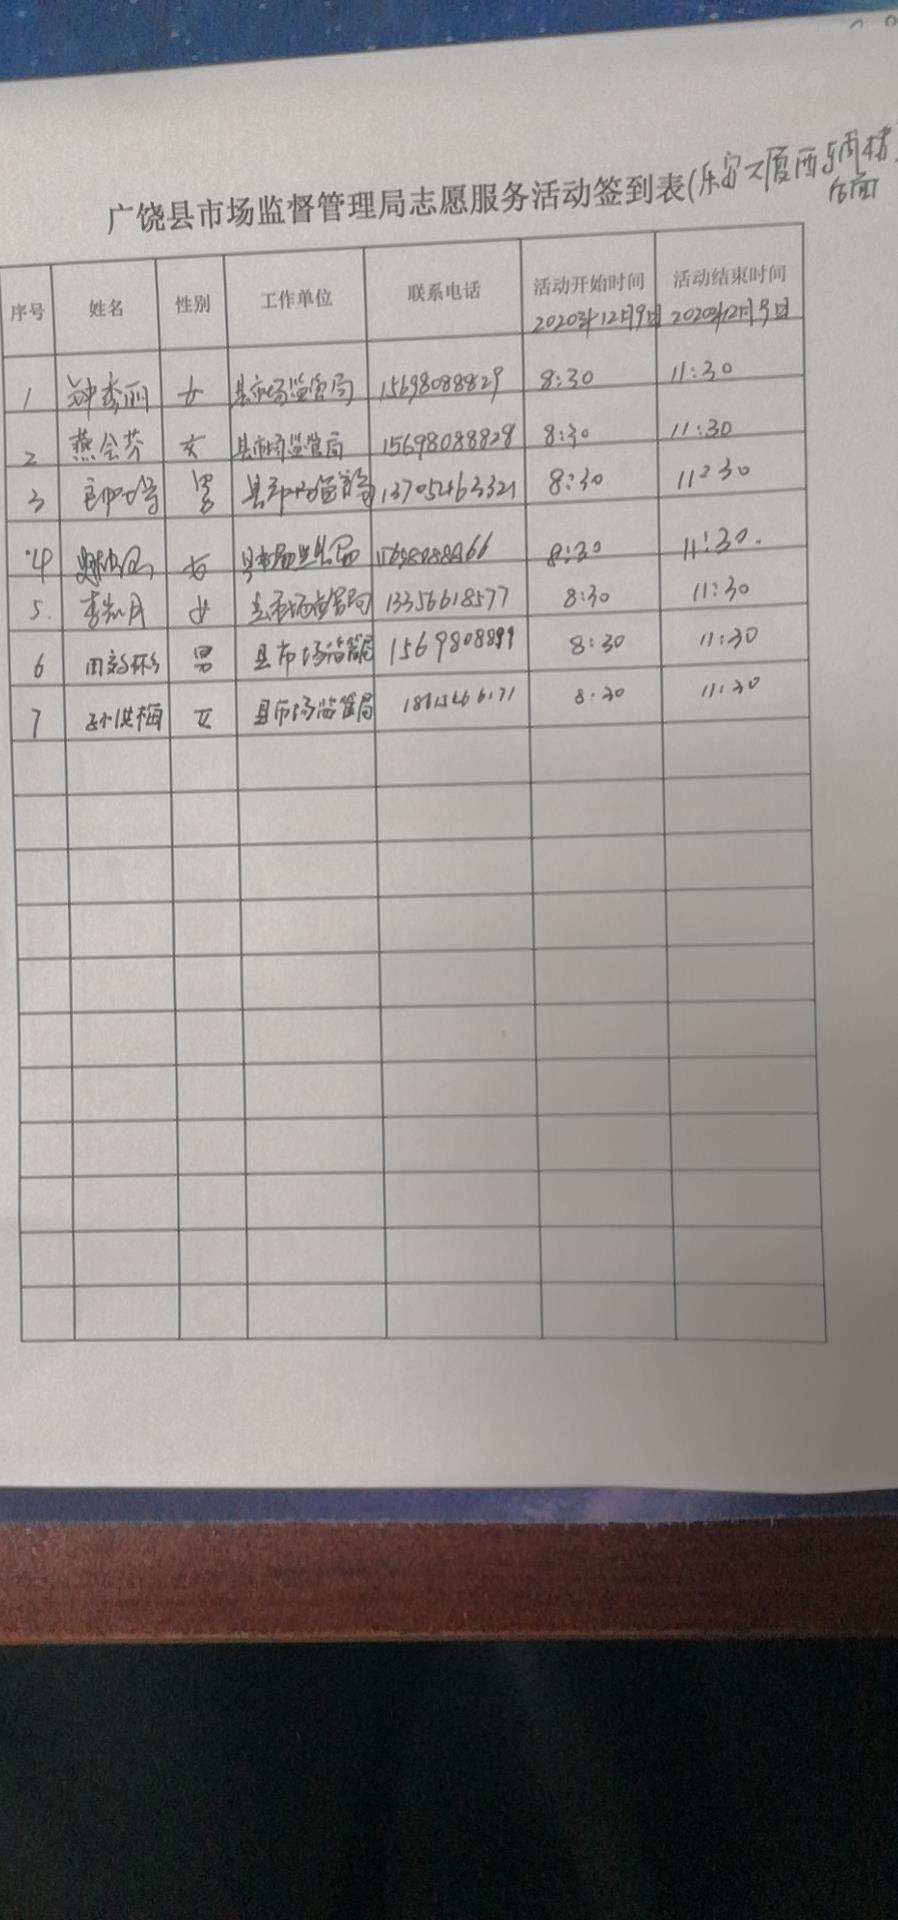 广饶县市场监督管理局志愿服务活动签到表(乐安大厦西
后面
序号 姓名 性别 工作单位 联系电话 活动开始时间 活动结束时间
2020年12月9日 2020年12月9日
1 钟秀丽 女 县市场监管局 15698088829 8:30 11:30
2 燕会芬 女 县市场监管局 15698088828 8:30 11:30
3 男 县市场监管局 13705463321 8:30 11:30
4 女 县市场监管局 8:30 11:30.
5. 女 县市场监管局 13356618577 8:30 11:30
6 男 县市场监管局 8:30 11:30
7 孙洪梅 女 县市场监管局 8:30 11:30